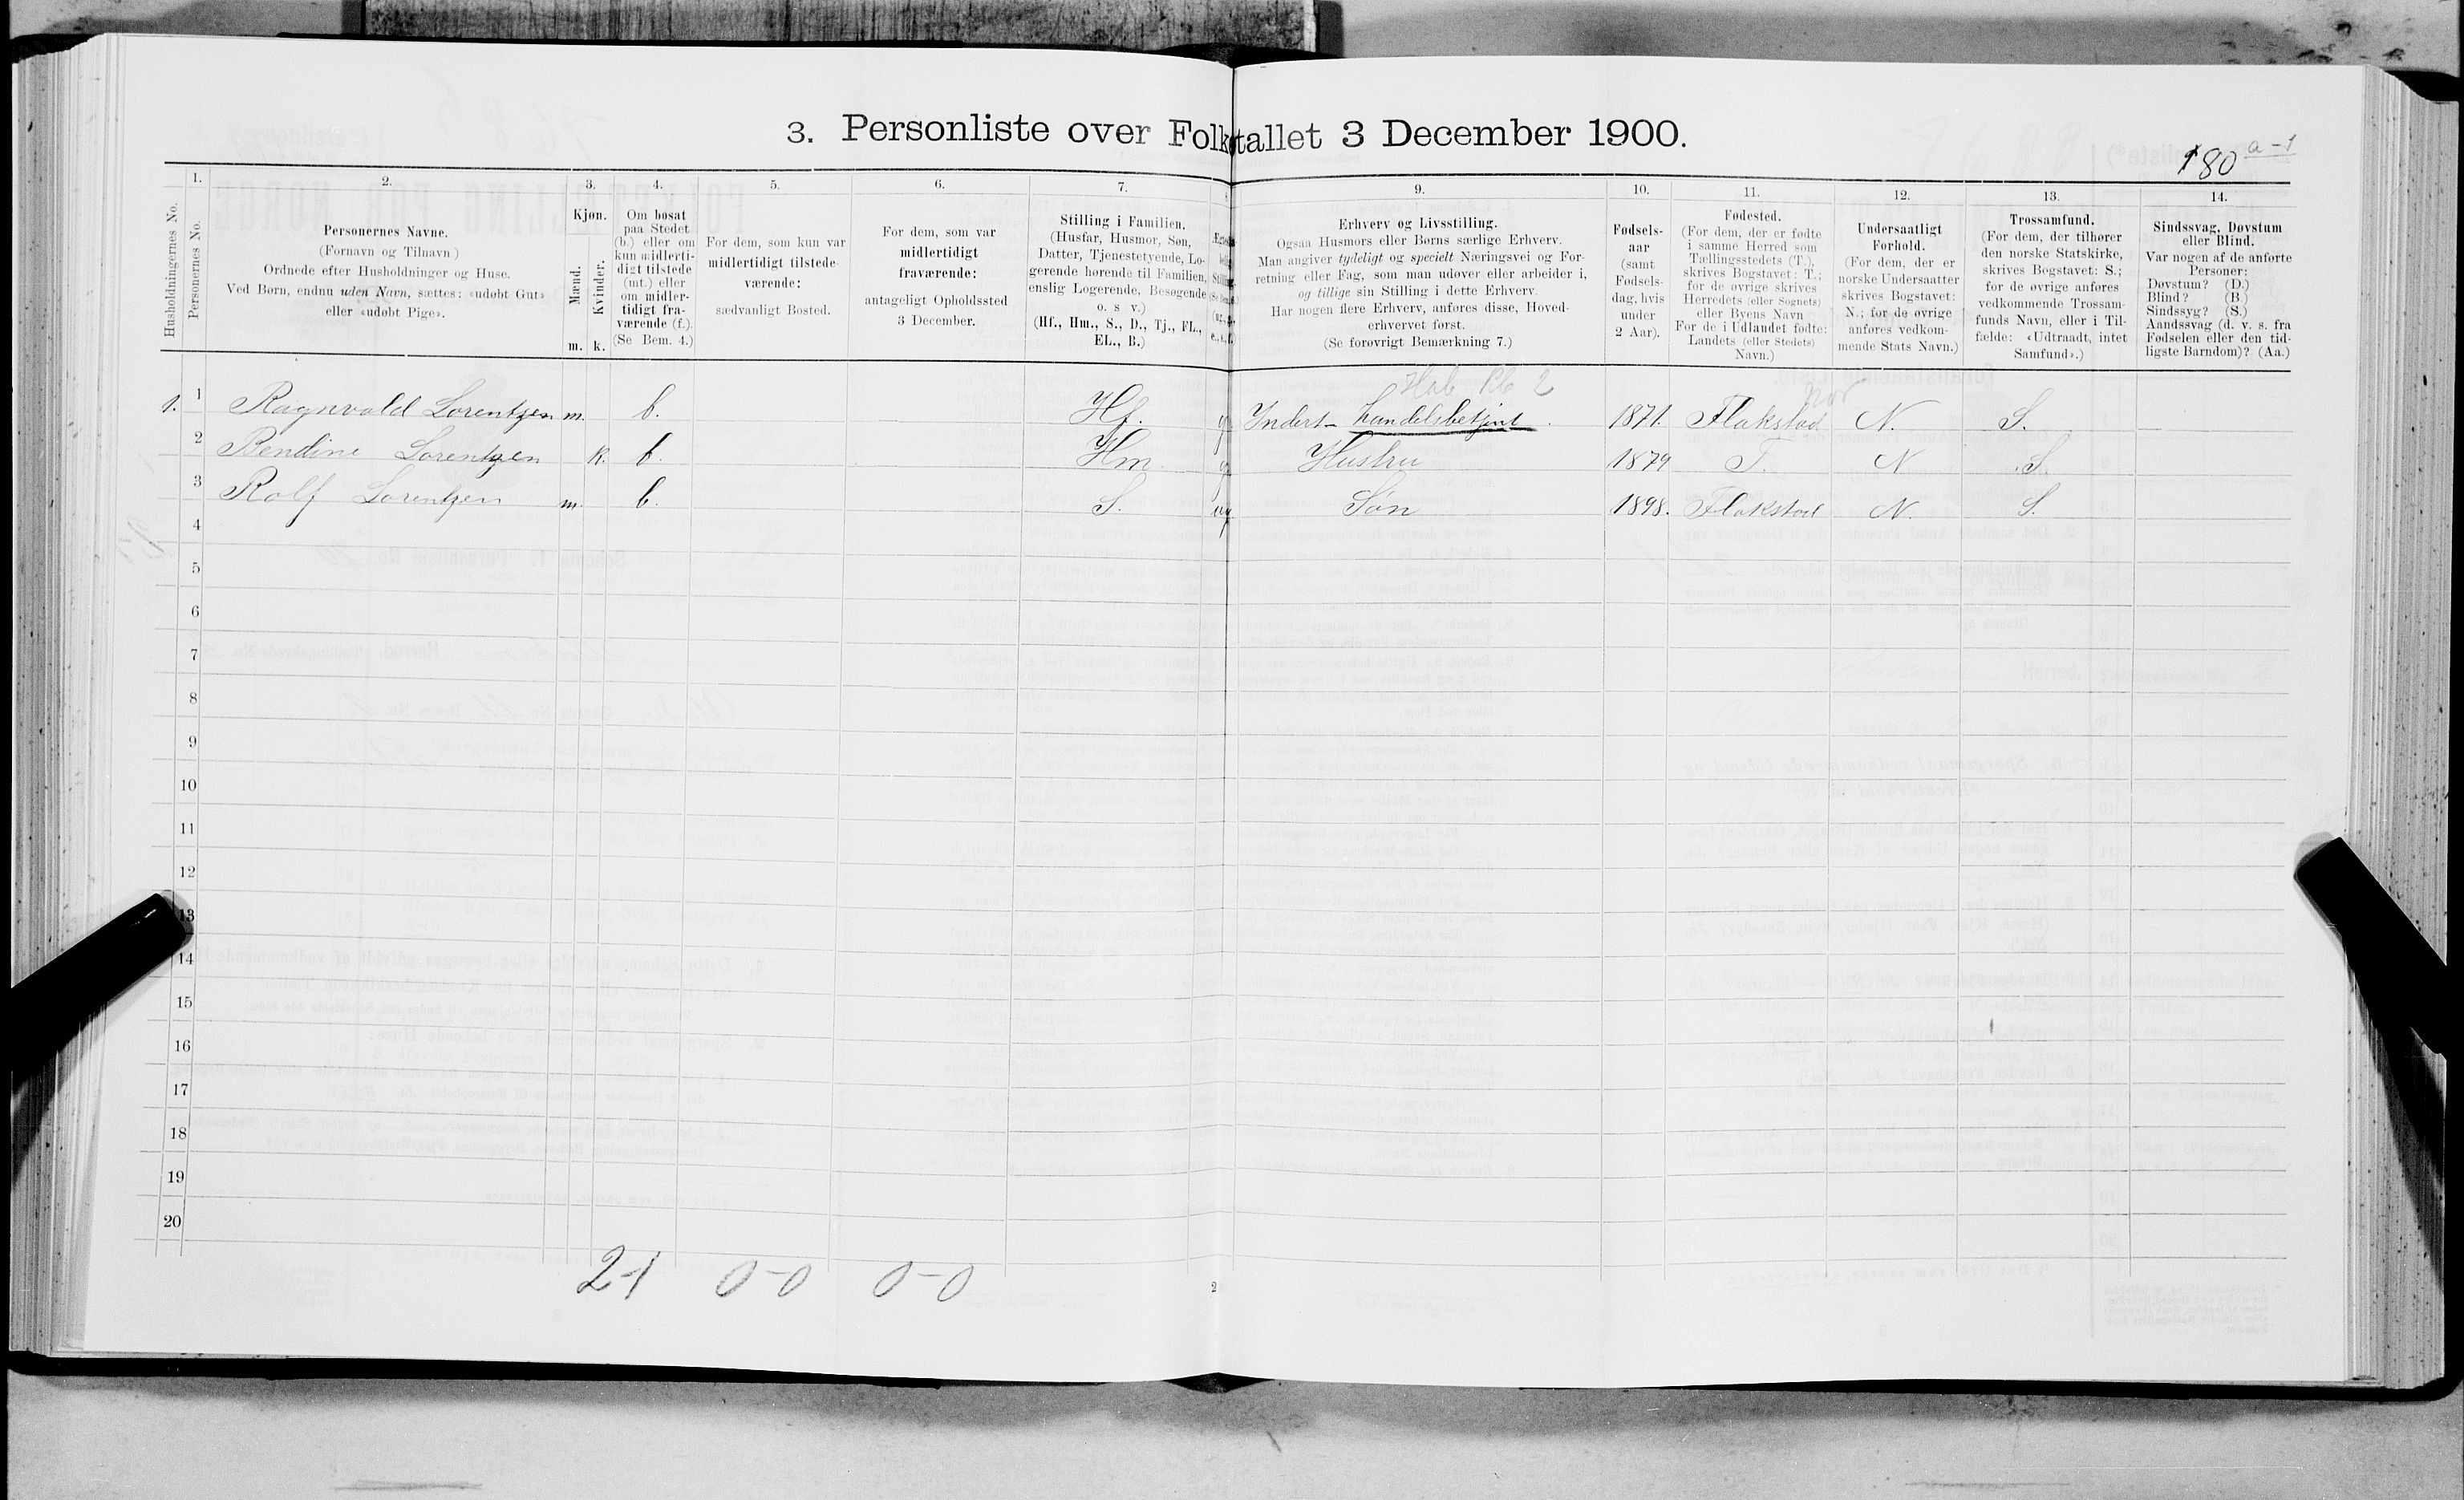 3. Personliste over Folketallet 3 December 1900.
180 a-1
1. 2. 3. 4. 5. 6. 7. 9. 10. 11. 12. 13. 14.
Husholdningernes No.
Personernes No.
Personernes Navne.
(Fornavn og Tilnavn)
Ordnede efter Husholdninger og Huse.
Ved Børn, endnu uden Navn, sættes: «udøbt Gut»
eller «udøbt Pige».
Kjøn.
Mænd.
Kvinder.
m. k.
Om bosat
paa Stedet
(b.) eller om
kun midlerti-
digt tilstede
(mt.) eller
om midler-
tidigt fra-
værende (f.).
(Se Bem. 4.)
For dem, som kun var
midlertidigt tilstede-
værende:
sædvanligt Bosted.
For dem, som var
midlertidigt
fraværende:
antageligt Opholdssted
3 December.
Stilling i Familien.
(Husfar, Husmor, Søn,
Datter, Tjenestetyende, Lo-
gerende hørende til Familien,
enslig Logerende, Besøgende
o. s v.)
(Hf., Hm., S., D., Tj., FL.,
EL., B.)
Erhverv og Livsstilling.
Ogsaa Husmors eller Børns særlige Erhverv.
Man angiver tydeligt og specielt Næringsvei og For-
retning eller Fag, som man udøver eller arbeider i,
og tillige sin Stilling i dette Erhverv.
Har nogen flere Erhverv, anføres disse, Hoved-
erhvervet først.
(Se forøvrigt Bemærkning 7.)
Fødsels-
aar
(samt
Fødsels-
dag, hvis
under
2 Aar).
Fødested.
(For dem, der er fødte
i samme Herred som
Tællingsstedets (T.),
skrives Bogstavet: T.;
for de øvrige skrives
Herredets (eller Sognets)
eller Byens Navn
For de i Udlandet fødte:
Landets (eller Stedets)
Navn.)
Undersaatligt
Forhold.
(For dem, der er
norske Undersaatter
skrives Bogstavet:
N.; for de øvrige
anføres vedkom-
mende Stats Navn.)
Trossamfund.
(For dem, der tilhører
den norske Statskirke,
skrives Bogstavet: S.;
for de øvrige anføres
vedkommende Trossam-
funds Navn, eller i Til-
fælde: «Udtraadt, intet
Samfund».)
Sindssvag, Døvstum
eller Blind.
Var nogen af de anførte
Personer:
Døvstum? (D.)
Blind? (B.)
Sindssyg? (S.)
Aandssvag (d. v. s. fra
Fødselen eller den tid-
ligste Barndom)? (Aa.)
1. 1 Ragnvald Lorentzen m. b. Hf. g Inderst - handelsbetjent. 1871. Flakstad N. S.
2 Bendine Lorentzen k. b. Hm g Hustru 1879 T. N S.
3 Rolf Lorentzen m. b. S. ug Søn 1898. Flakstad N. S.
4
5
6
7
8
9
10
11
12
13
14
15
16
17
18
19
20
2-1 0-0 0-0
2